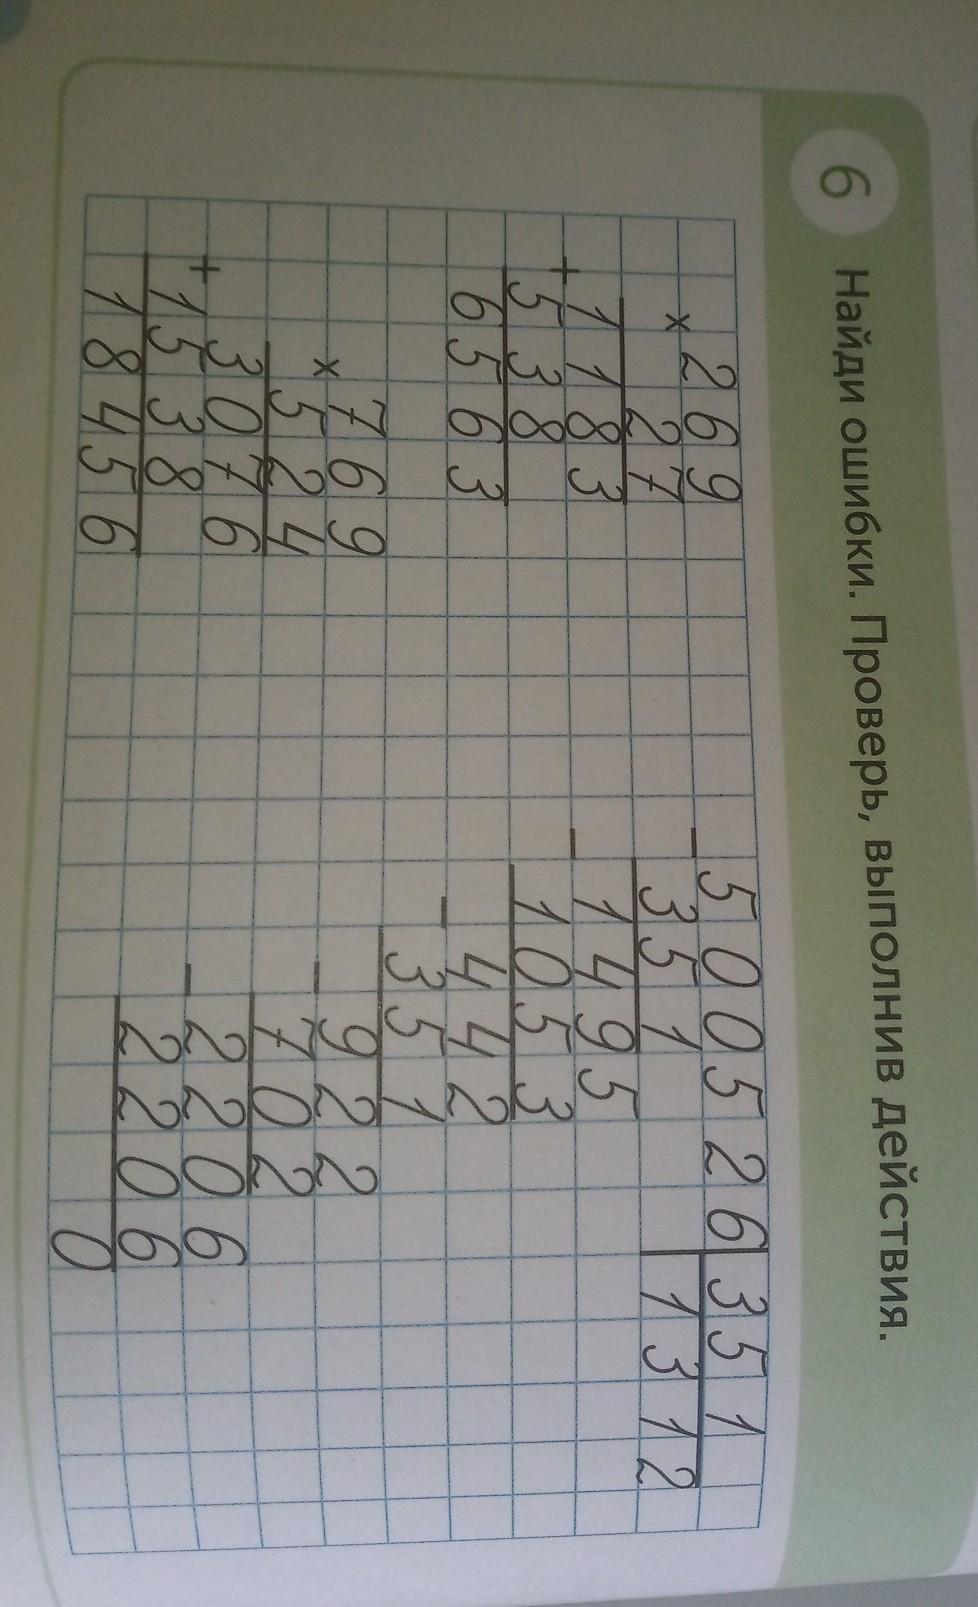 6 Найди ошибки. Проверь, выполнив действия.
× 2 6 9
2 7
+ 1 1 8 3
5 3 8
6 5 6 3
× 7 6 9
5 2 4
+ 3 0 7 6
1 5 3 8
1 8 4 5 6
− 5 0 0 5 2 6 | 3 5 1
3 5 1 | 1 3 1 2
− 1 4 9 5
1 0 5 3
− 4 4 2
3 5 1
− 9 2 2
7 0 2
− 2 2 0 6
2 2 0 6
0